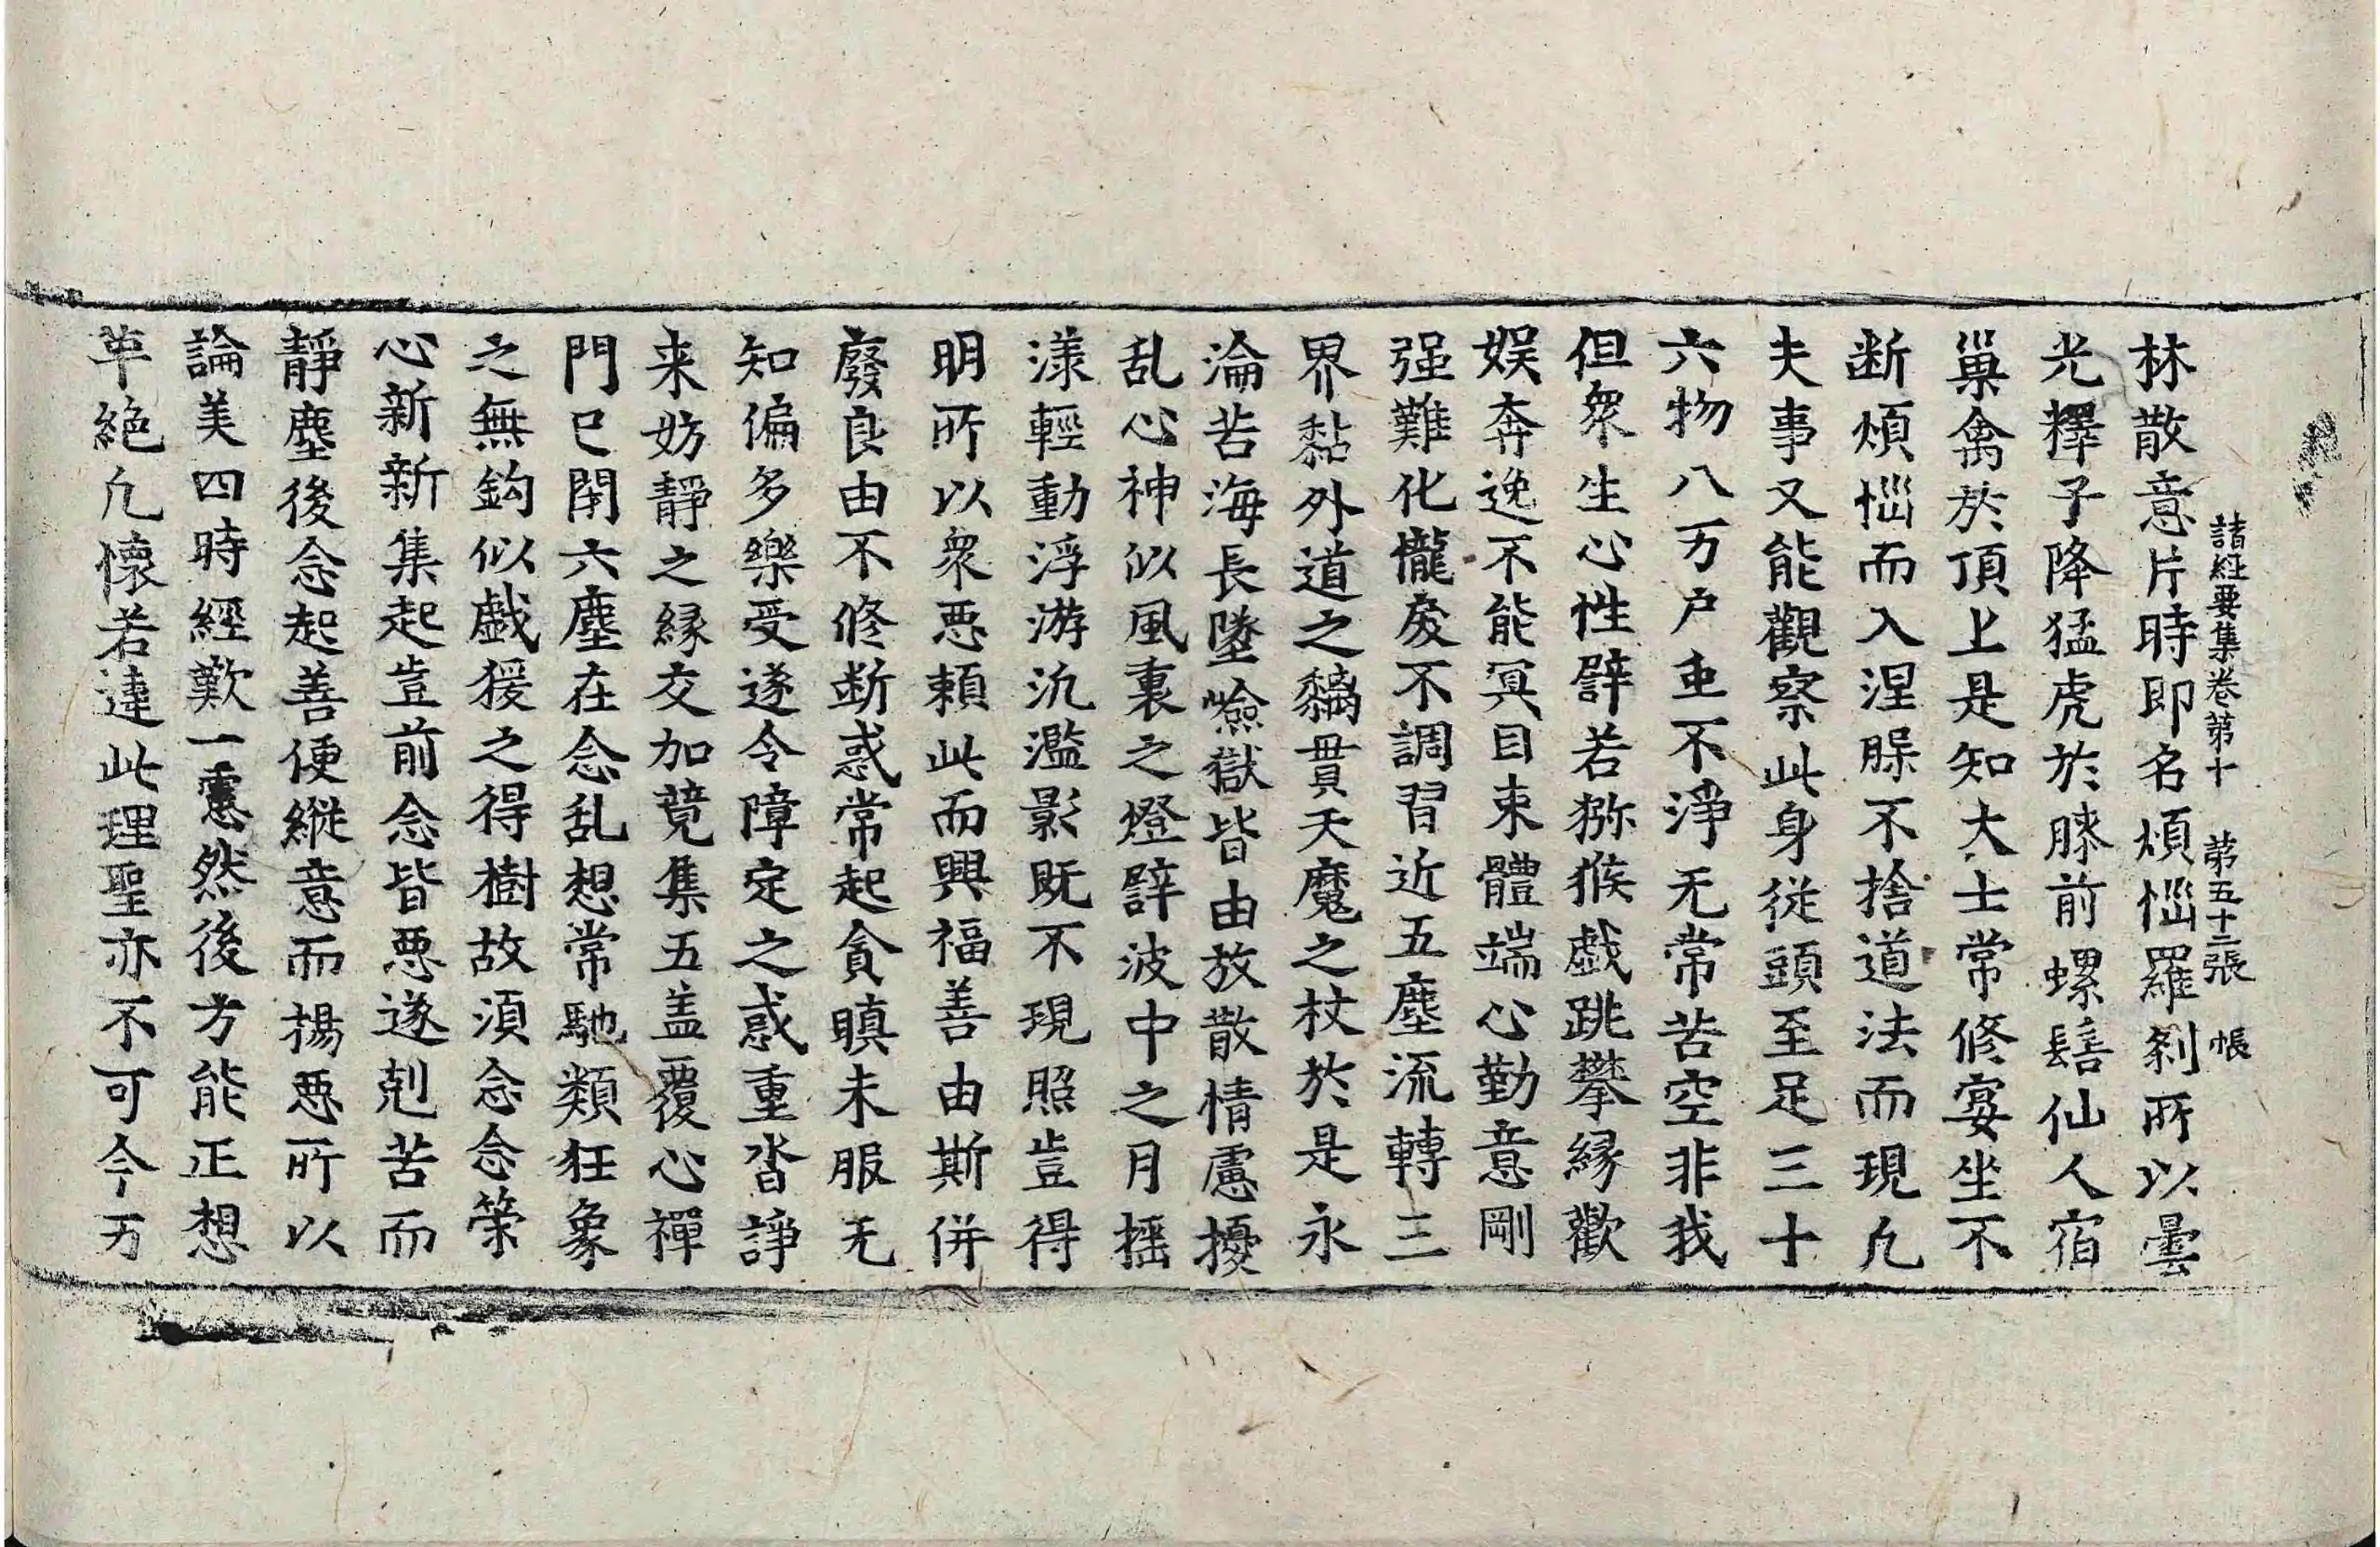 諸經要集卷第十 第五十二張 帳
林散意片時即名煩惱羅刹所以曇
光釋子降猛虎於膝前螺髻仙人宿
巢禽於頂上是知大士常修宴坐不
断煩惱而入涅槃不捨道法而現凡
夫事又能觀察此身従頭至足三十
六物八万户虫不淨无常苦空非我
但衆生心性譬若猕猴戲跳攀緣歡
娱奔逸不能冥目束體端心勤意剛
强難化憹戾不調習近五塵流轉三
界黏外道之黐貫天魔之杖於是永
淪苦海長墜嶮獄皆由放散情慮擾
乱心神似風裏之燈譬波中之月摇
漾輕動浮游汎濫影既不現照豈得
明所以衆惡頼此而興福善由斯併
廢良由不修断惑常起貪瞋未服无
知偏多樂受遂令障定之惑重沓諍
来妨靜之緣交加競集五盖覆心禪
門已閉六塵在念乱想常馳類狂象
之無鈎似戲猨之得樹故須念念策
心新新集起豈前念皆惡遂剋苦而
靜塵後念起善便縱意而揚惡所以
論美四時經歎一慮然後方能正想
革絶凡懷若違此理聖亦不可今万